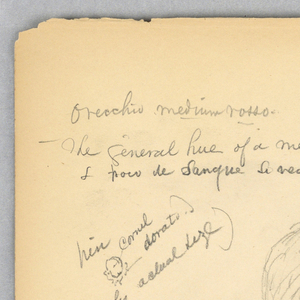 Orecchio medium rosso.
The general hue of a me
& poco de Sangue Si ve
pin cornel
dorato
actual size)
by